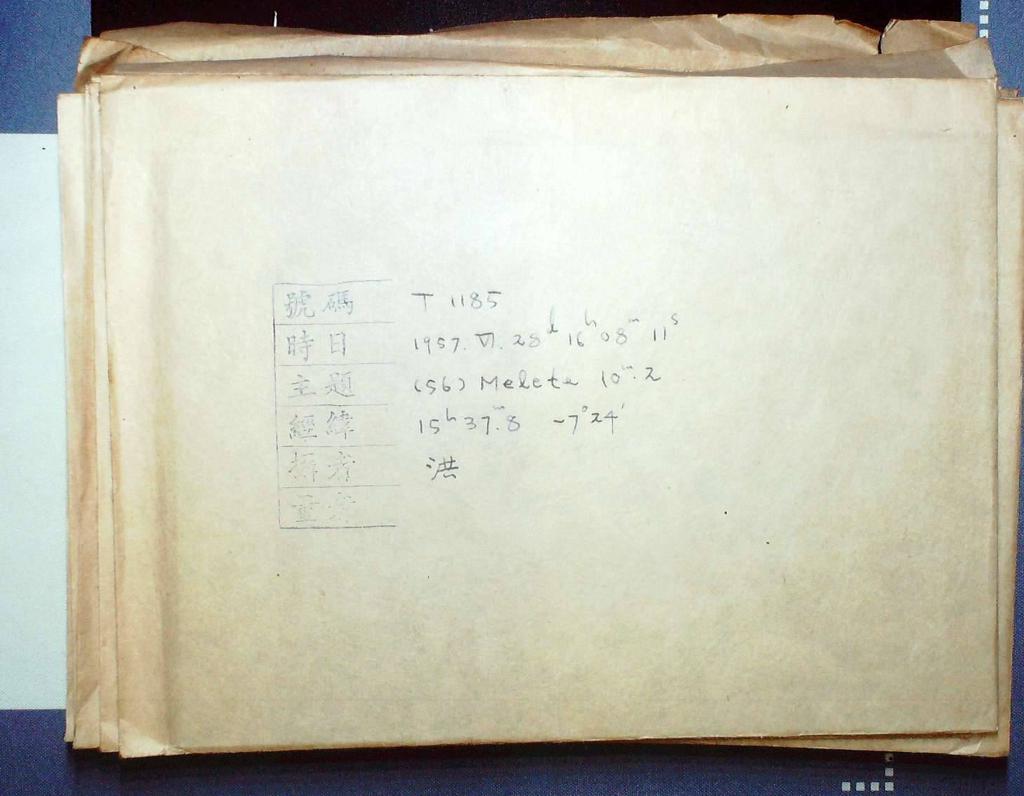 號碼 T 1185
時日 1957. VI. 28ᵈ 16ʰ 08ᵐ 11ˢ
主題 (56) Melete 10ᵐ.2
經緯 15ʰ 37ᵐ.8 -7°24'
攝者 洪
量者